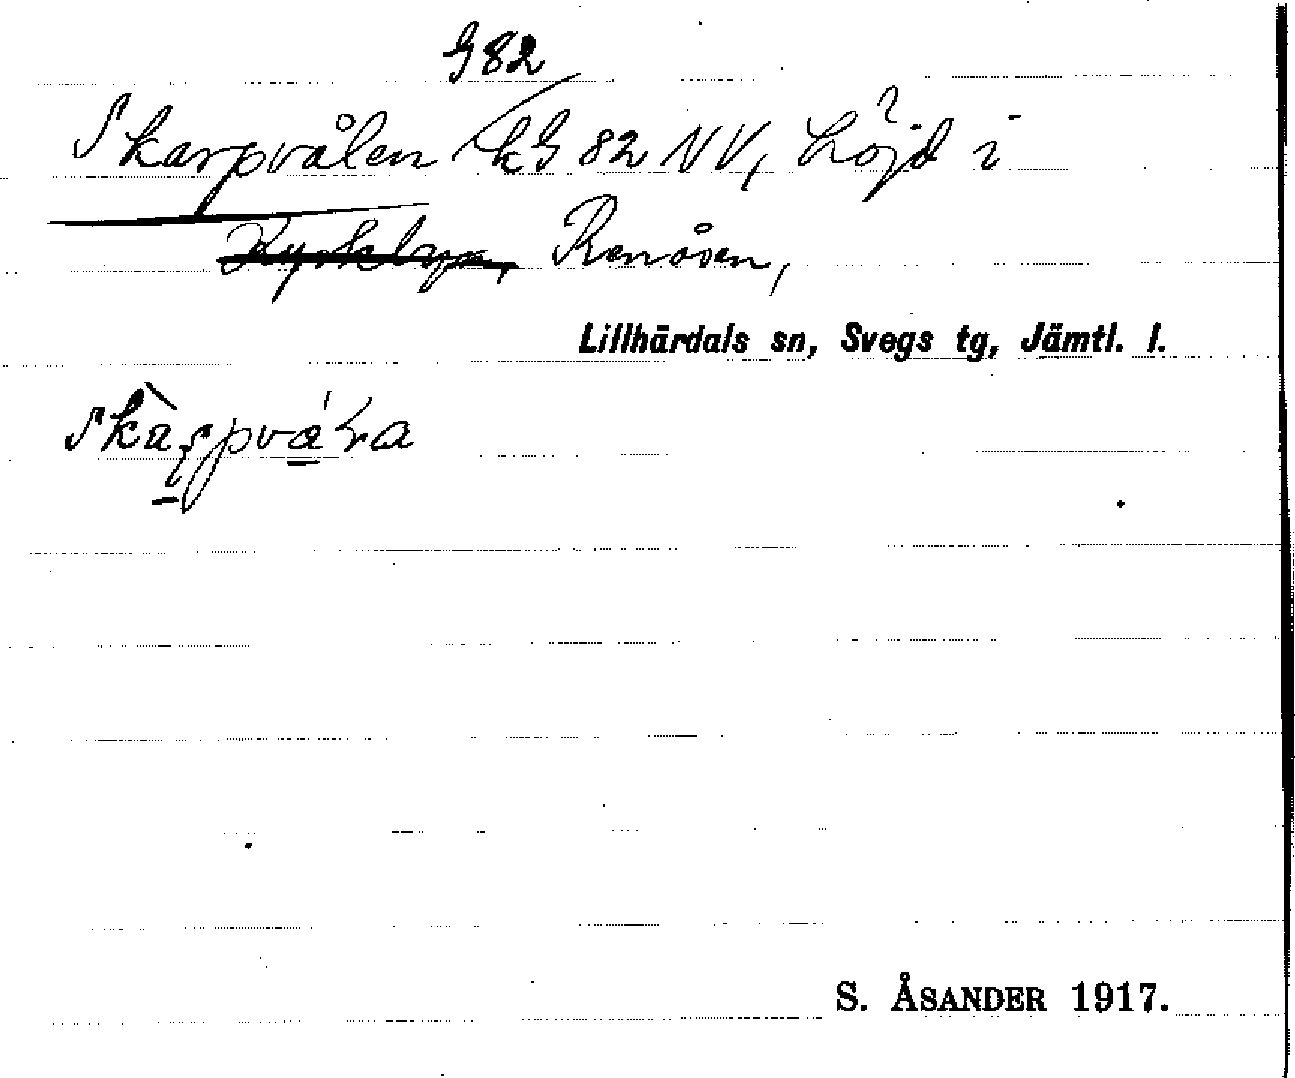 G 82
Skarpvålen kG 82 NV, Löjd i
Kyrkbyn, Renåsen,
Lillhärdals sn, Svegs tg, Jämtl. l.
S. ÅSANDER 1917.